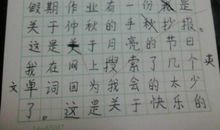 假期作业有一份就是
关于仲秋的手秋抄报。
这是关于月亮的节日
我在网上搜索了几个英
文单词因为我会的太少
了。这是关于快乐的